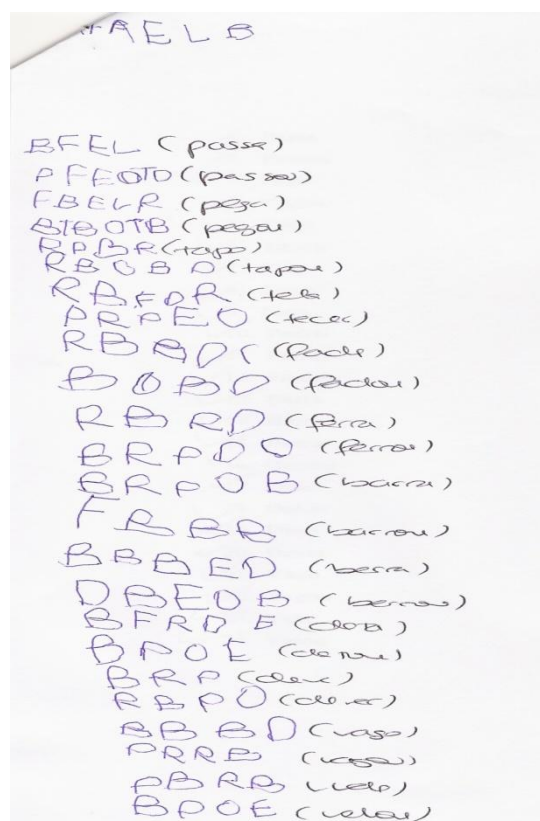 AELB
BFEL (passa)
PFEOTO (passou)
FBELR (pega)
BTBOTB (pegou)
RPBR (tapa)
RBOBD (tapou)
RBFDR (tele)
PRPEO (tecer)
RBADI (fada)
BOBD (fadou)
RBRD (ferra)
BRPDO (ferrou)
BRPOB (barra)
FRBR (barrou)
BBBED (berra)
DBEOB (berrou)
BFRDE
BPOE
BRP
RBPO
BBBD (vaga)
PRRB (vagou)
PBRB (vela)
BPOE (velou)